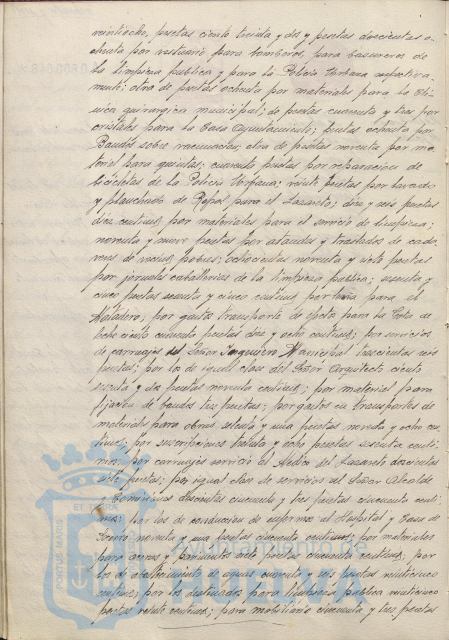 veintiocho, pesetas ciento treinta y dos y pesetas doscientas o-
chenta por vestuario para bomberos, para basureros de
la limpieza publica y para la Policia Urbana respectiva-
mente; otra de pesetas ochenta por materiales para la Cli-
nica quirurgica municipal; de pesetas cuarenta y tres por
cristales para la Casa Ayuntamiento; pesetas ochenta por
Bandos sobre vacunacion; otra de pesetas noventa por ma-
terial para quintas; cuarenta pesetas por reparacion de
bicicletas de la Policia Urbana; veinte pesetas por lavado
y planchado de Ropas para el Lazareto; diez y seis pesetas
diez centimos por materiales para el servicio de limpieza;
noventa y nueve pesetas por ataudes y traslados de cada-
veres de vecinos pobres; ochocientas noventa y siete pesetas
por jornales caballerias de la limpieza publica; sesenta y
cinco pesetas sesenta y cinco centimos por para el
Matadero; por gastos transporte de para la Gota de
leche ciento cincuenta pesetas diez y ocho centimos; por servicios
de carruajes al Señor Ingeniero Municipal trescientas seis
pesetas; por los de igual clase del Señor Arquitecto ciento
sesenta y dos pesetas noventa centimos; por material para
fijacion de bandos tres pesetas; por gastos en transportes de
materiales para obras sesenta y una pesetas noventa y ocho cen-
timos; por suscripciones treinta y ocho pesetas sesenta centi-
mos; por carruajes servicio al Medico del Lazareto doscientas
siete pesetas; por igual clase de servicios al Señor Alcalde
y Comisiones doscientas cincuenta y tres pesetas cincuenta centi-
mos; por los de conduccion de enfermos al Hospital y Casa de
Socorro noventa y una pesetas cincuenta centimos; por materiales
para aceras y pavimentos siete pesetas cincuenta centimos; por
los de abastecimiento de aguas cuarenta y seis pesetas veinticinco
centimos; por los destinados para limpieza publica veinticinco
pesetas veinte centimos; para mobiliario cincuenta y tres pesetas